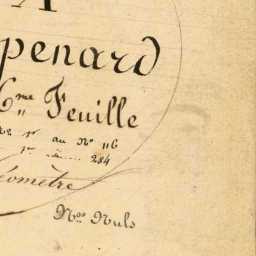 A
penard
6.me Feuille
1er au No 116
1er ........ 284
éomètre
Nos Nuls